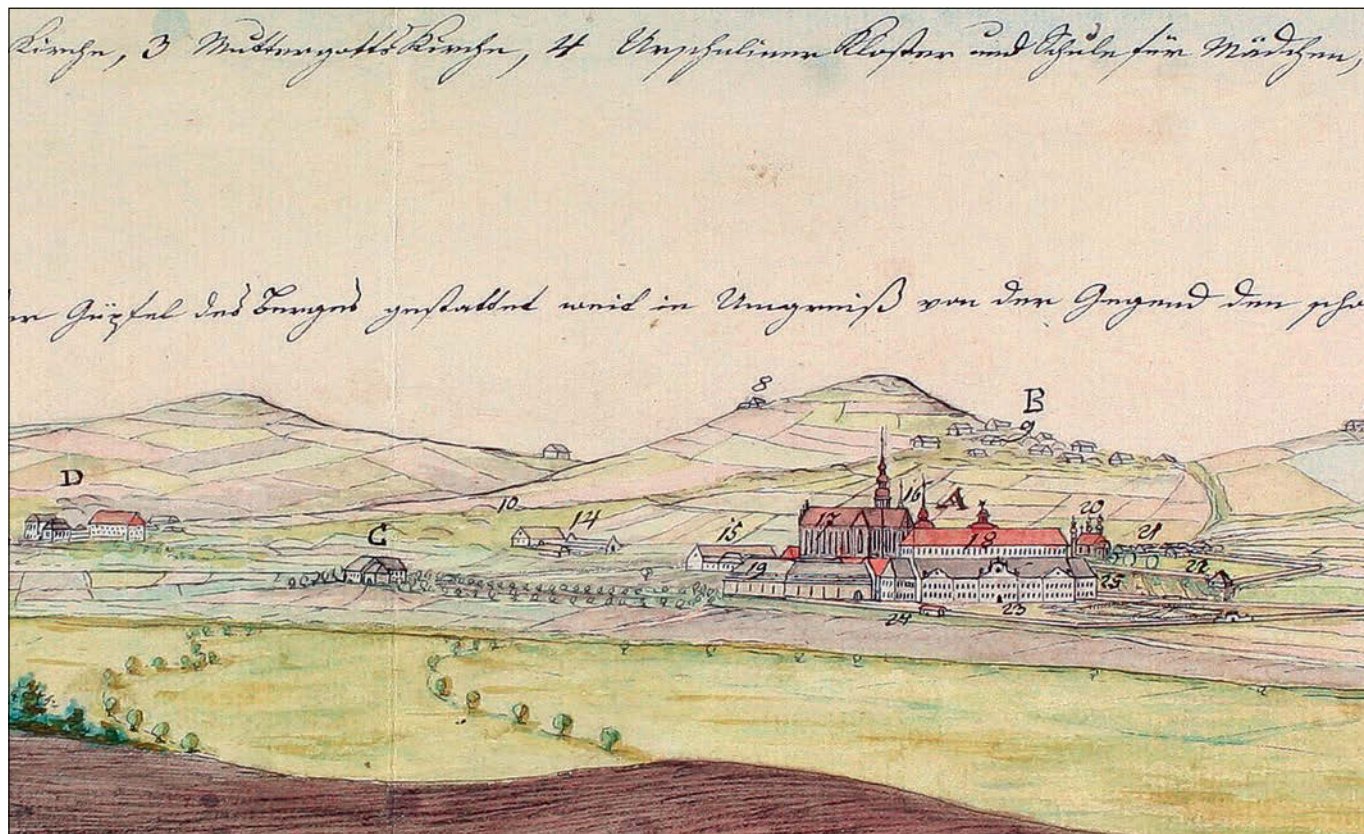 Kirche, 3 Muttergotts Kirche, 4 Urschuliner Kloster und Schule für Mädchen,
er Güpfel des Berges gestattet weit in Umgreiß von der Gegend den scho
8
B
9
D
10
14
16
A
20
C
15
17
18
21
22
19
25
23
24